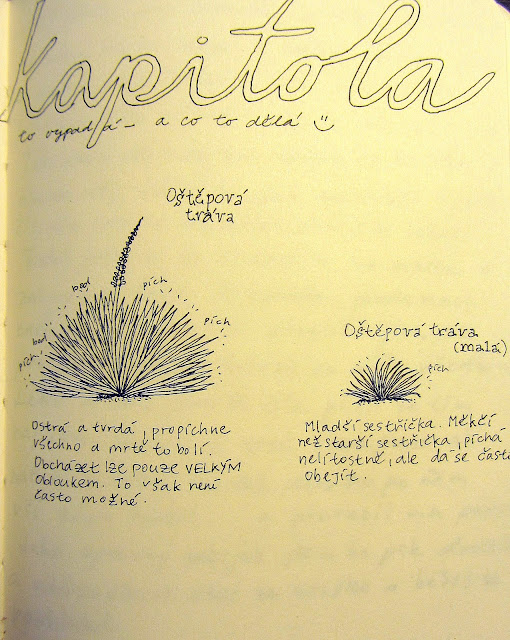 kapitola
to vypadá – a co to dělá
Oštěpová
tráva
bod
pích
pích
bod
pích
Oštěpová tráva
(malá)
pích
Ostrá a tvrdá, propíchne
všechno a mrtě to bolí.
Obcházet lze pouze VELKÝM
obloukem. To však není
často možné.
Mladší sestřička. Měkčí
než starší sestřička, píchá
nelítostně, ale dá se často
obejít.